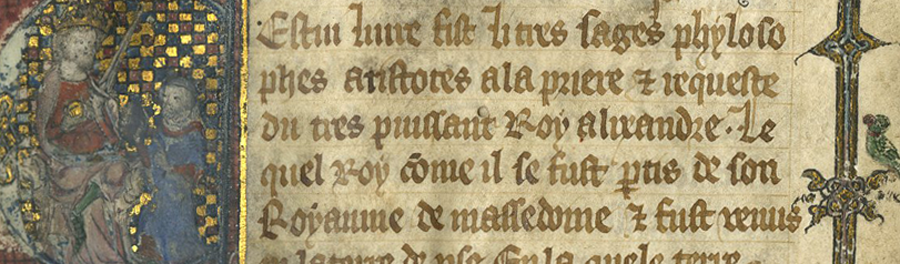 Cestui liure fist li tres sages phyloso
phes aristotes a la priere ⁊ requeste
du tres puissant Roy alixandre. Le
quel Roy cōme il se fust ꝑtis de son
Royaume de massedoine ⁊ fust venus
en la terre de pse En la quele terre